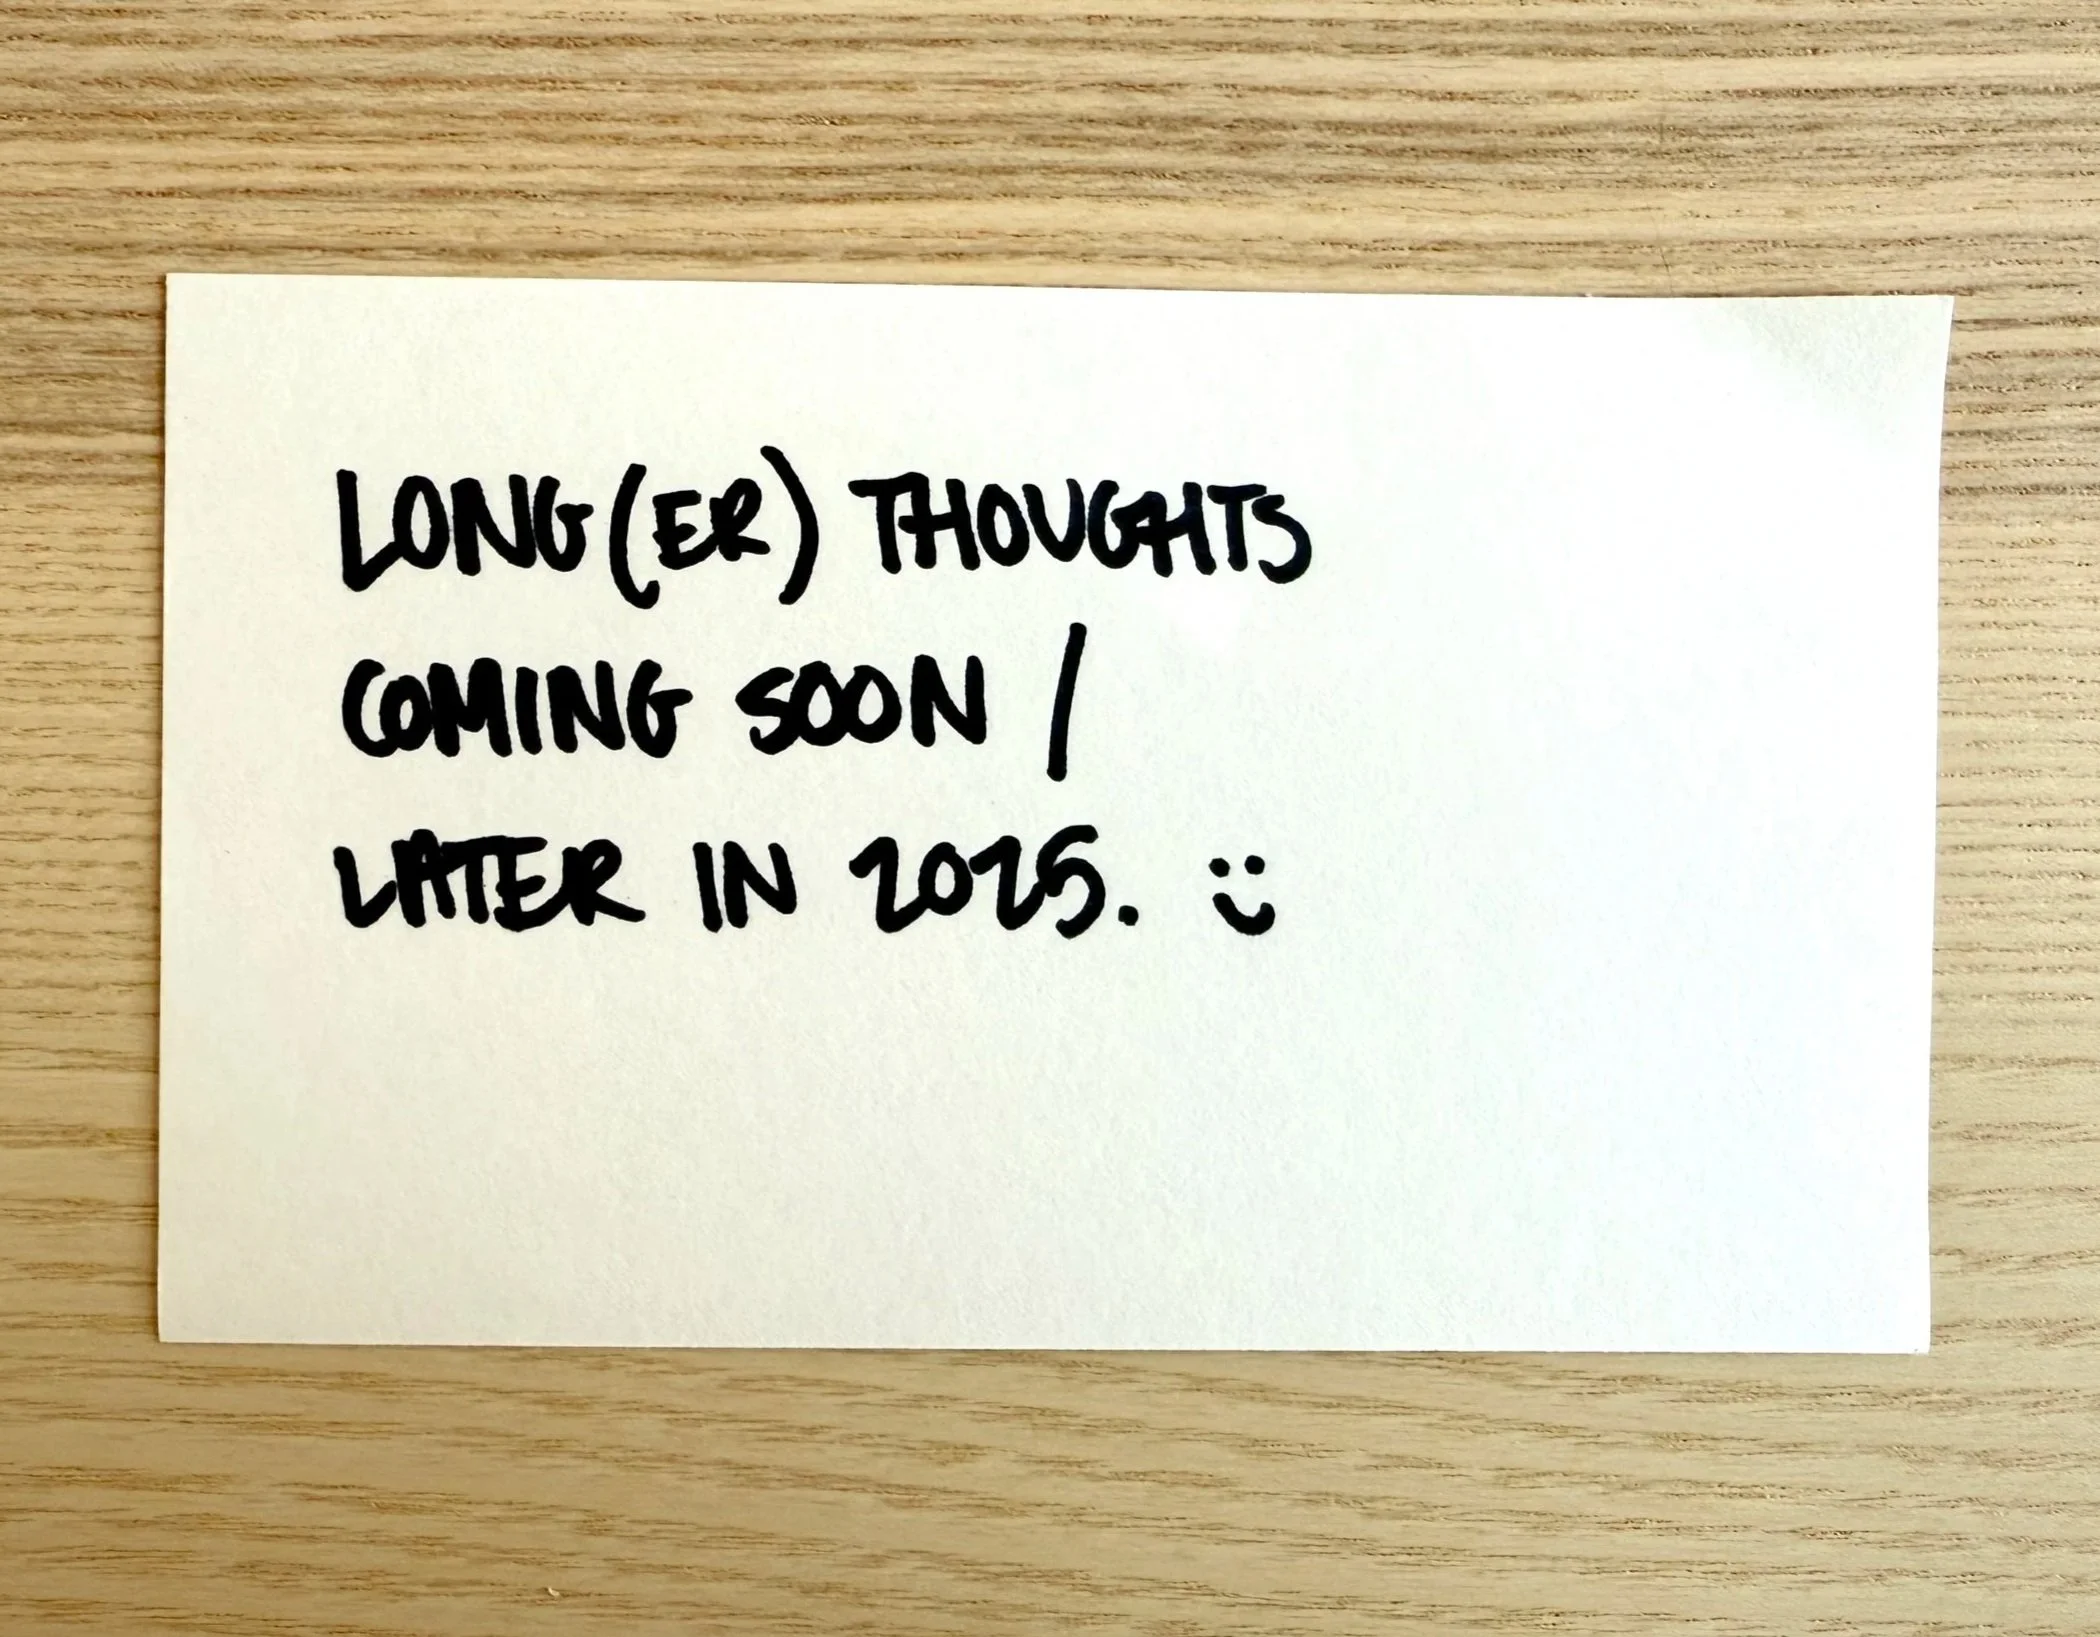 LONG(ER) THOUGHTS
COMING SOON /
LATER IN 2025. :)